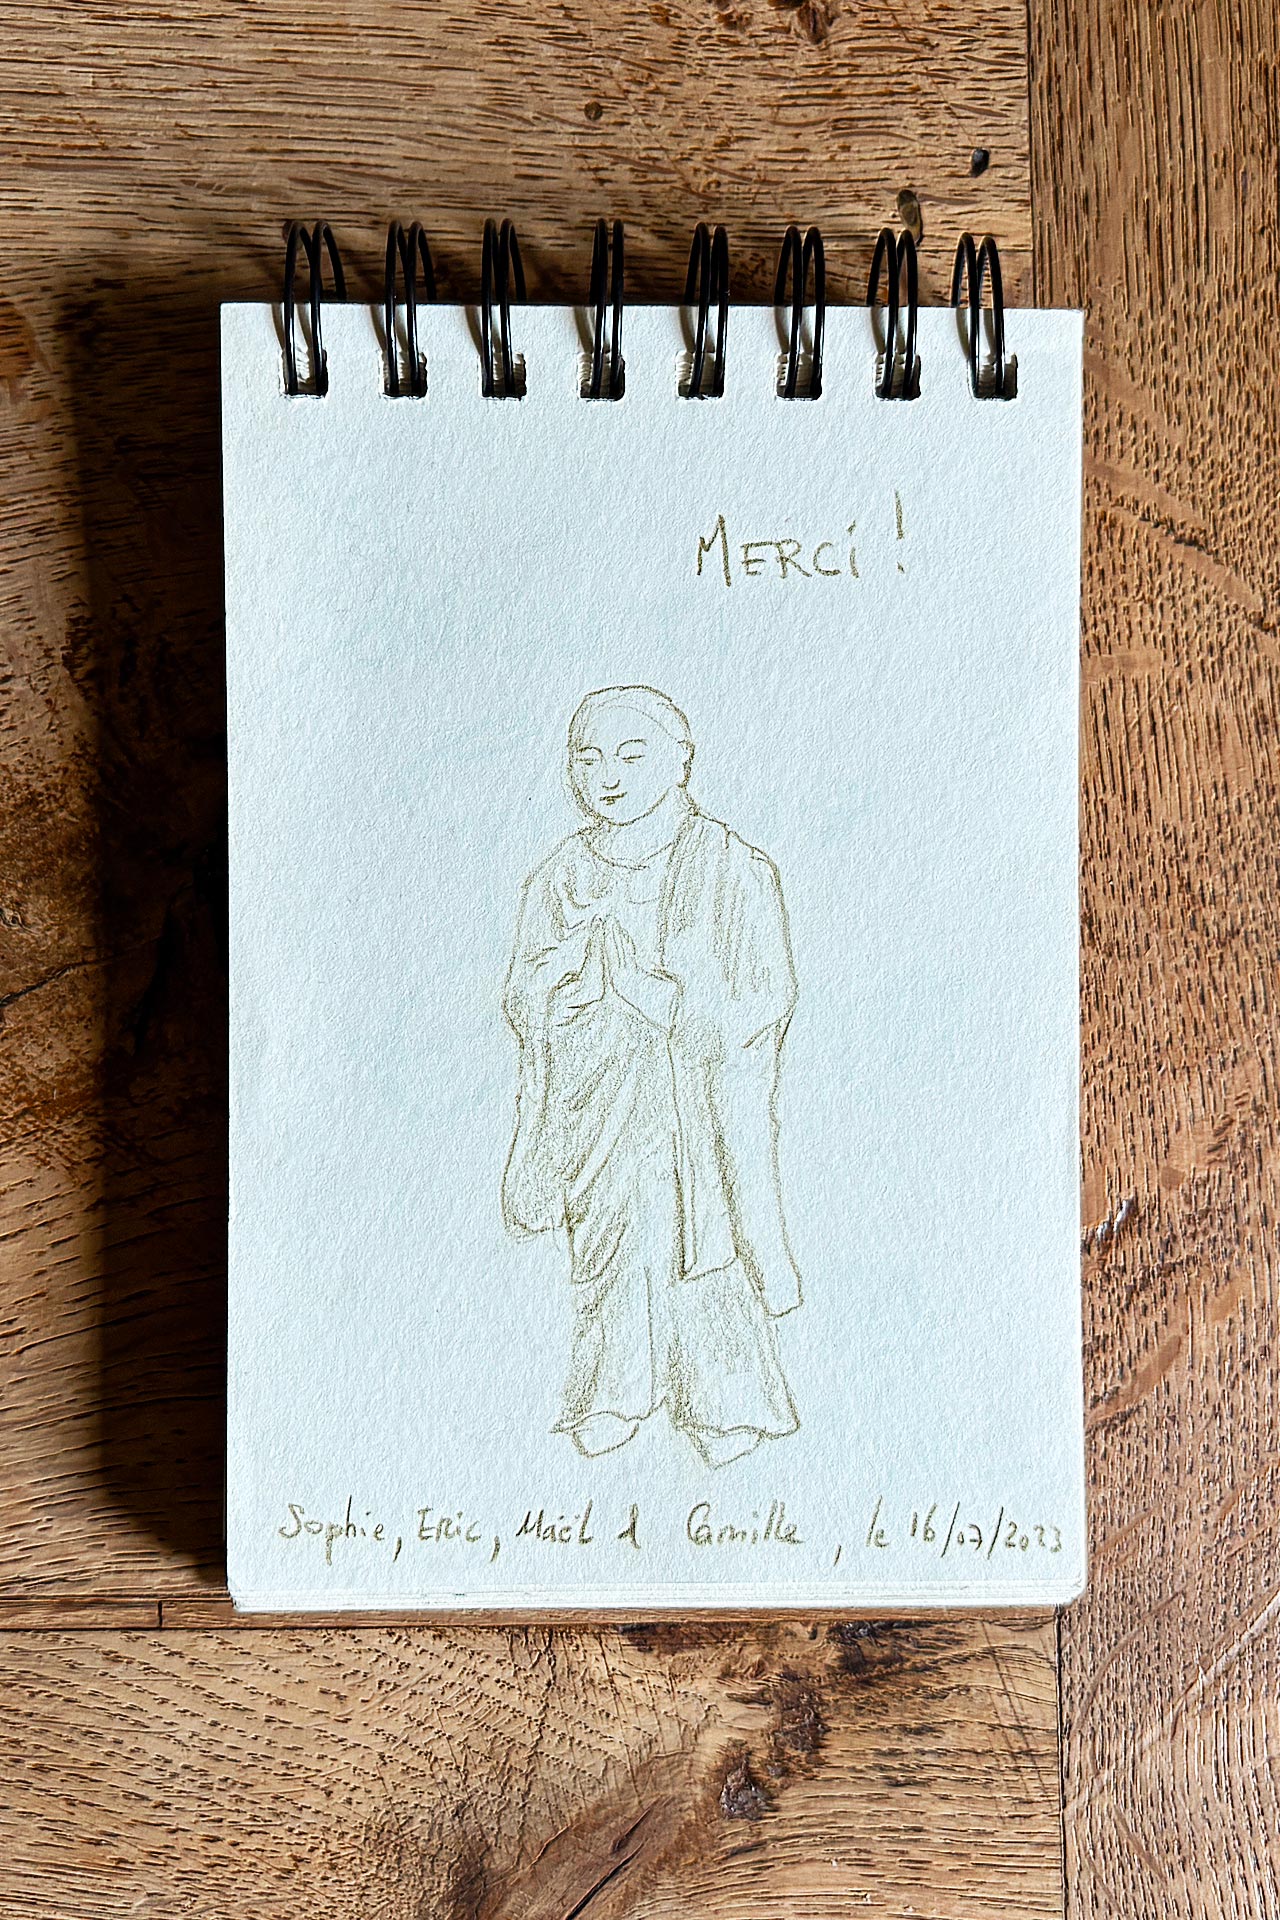 MERCi !
Sophie, Eric, Maël & Camille, le 16/07/2023